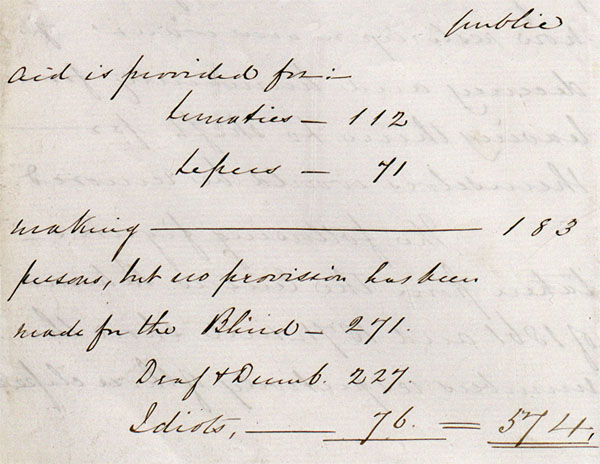 public
aid is provided for:-
Lunatics – 112
Lepers – 71
making ——— 183
persons, but no provision has been
made for the Blind – 271.
Deaf & Dumb. 227
Idiots, —— 76. = 574,